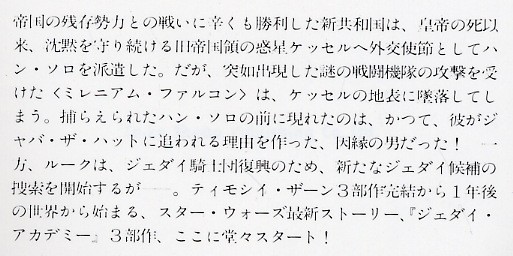 帝国の残存勢力との戦いに辛くも勝利した新共和国は、皇帝の死以
来、沈黙を守り続ける旧帝国領の惑星ケッセルへ外交使節としてハ
ン・ソロを派遣した。だが、突如出現した謎の戦闘機隊の攻撃を受
けた〈ミレニアム・ファルコン〉は、ケッセルの地表に墜落してし
まう。捕らえられたハン・ソロの前に現れたのは、かつて、彼がジ
ャバ・ザ・ハットに追われる理由を作った、因縁の男だった！　一
方、ルークは、ジェダイ騎士団復興のため、新たなジェダイ候補の
捜索を開始するが──。ティモシイ・ザーン３部作完結から１年後
の世界から始まる、スター・ウォーズ最新ストーリー、『ジェダイ・
アカデミー』３部作、ここに堂々スタート！